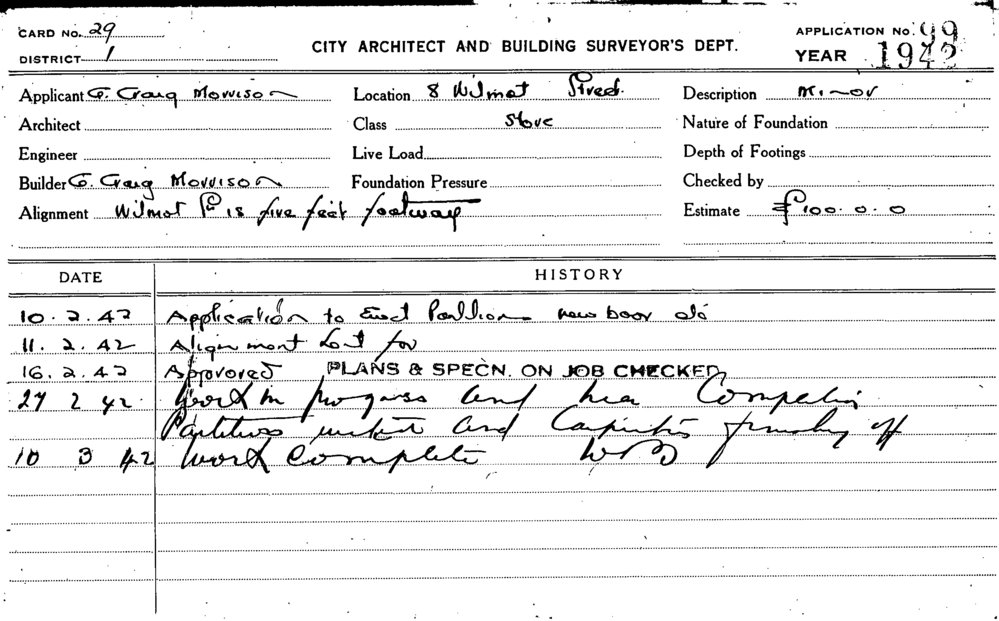 CARD No. 29
DISTRICT 1
CITY ARCHITECT AND BUILDING SURVEYOR'S DEPT.
APPLICATION No. 99
YEAR 1942
Applicant G. Craig Morrison Location 8 Wilmot Street Description Minor
Architect Class Store Nature of Foundation
Engineer Live Load Depth of Footings
Builder G. Craig Morrison Foundation Pressure Checked by
Alignment Wilmot St is five feet footway Estimate £100.0.0
DATE HISTORY
10.2.42 Application to Erect Partitions new door etc
11.2.42 Alignment for
16.2.42 Approved PLANS & SPECN. ON JOB CHECKED
27 2 42 Work in progress and near
Partitions and Carpenters off
10 3 42 Work Complete